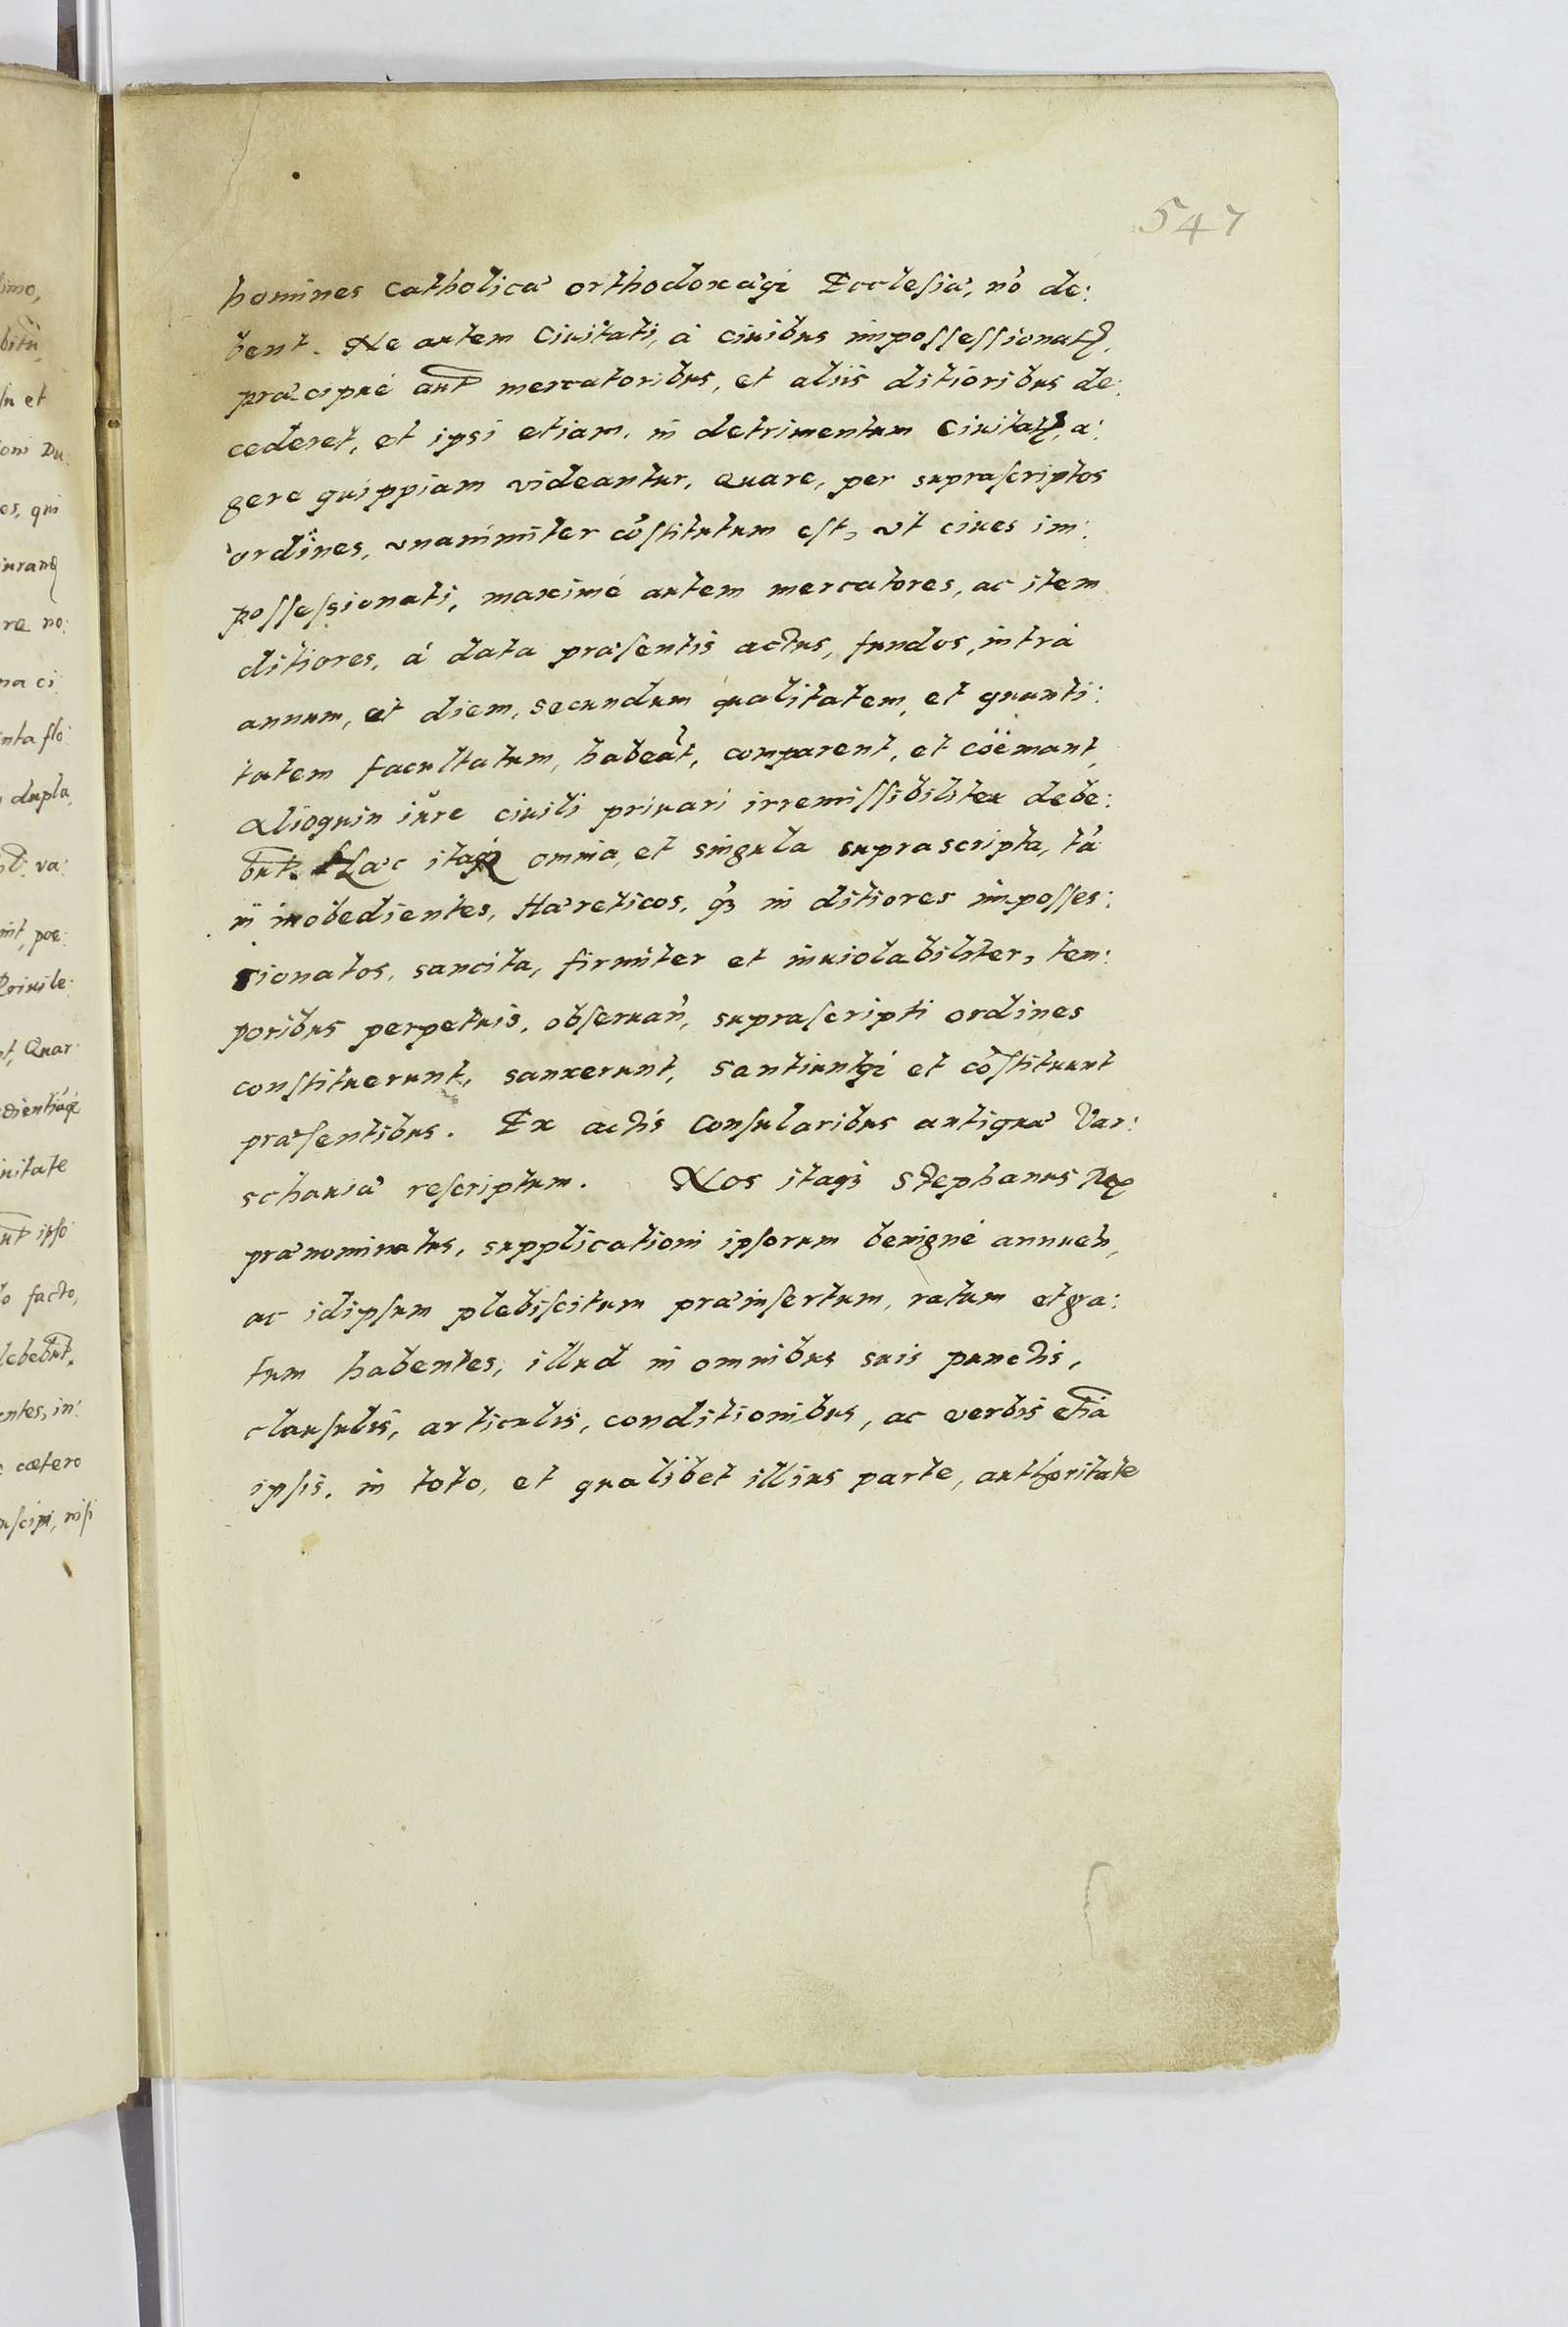 547
homines catholicæ orthodoxæq́ꝫ Ecclesiæ, nõ de:
bent. Ne autem Ciuitati, à ciuibus impossessionatꝭ,
præcipuè aut̃ mercatoribus, et aliis ditioribus de:
cederet, et ipsi etiam, in detrimentum Ciuitatꝭ, a:
gere quippiam videantur, Quare, per suprascriptos
ordines, vnanimiter cõstitutum est, vt ciues im:
possessionati, maximè autem mercatores, ac item
ditiores, à data præsentis actus, fundos, intrà
annum, et diem, secundum qualitatem, et quanti:
tatem facultatum, habeãt, comparent, et coëmant,
alioquin iure ciuili priuari irremissibiliter debe:
bũt. Hæc itaqꝫ omnia, et singula suprascripta, tã
in inobedientes, Hæreticos, q̃ꝫ in ditiores imposses:
sionatos, sancita, firmiter et inuiolabiliter, tem:
poribus perpetuis, obseruañ, suprascripti ordines
constituerunt, sanxerunt, santiuntq́ꝫ et cõstituunt
præsentibus. Ex actis Consularibus antiquæ Var:
schauiæ rescriptum. Nos itaqꝫ Stephanus Rex
prænominatus, supplicationi ipsorum benignè annueñ,
ac idipsum plebiscitum præinsertum, ratum et gra:
tum habentes, illud in omnibus suis punctis,
clausulis, articulis, conditionibus, ac verbis etiã
ipsis, in toto, et qualibet illius parte, authoritate